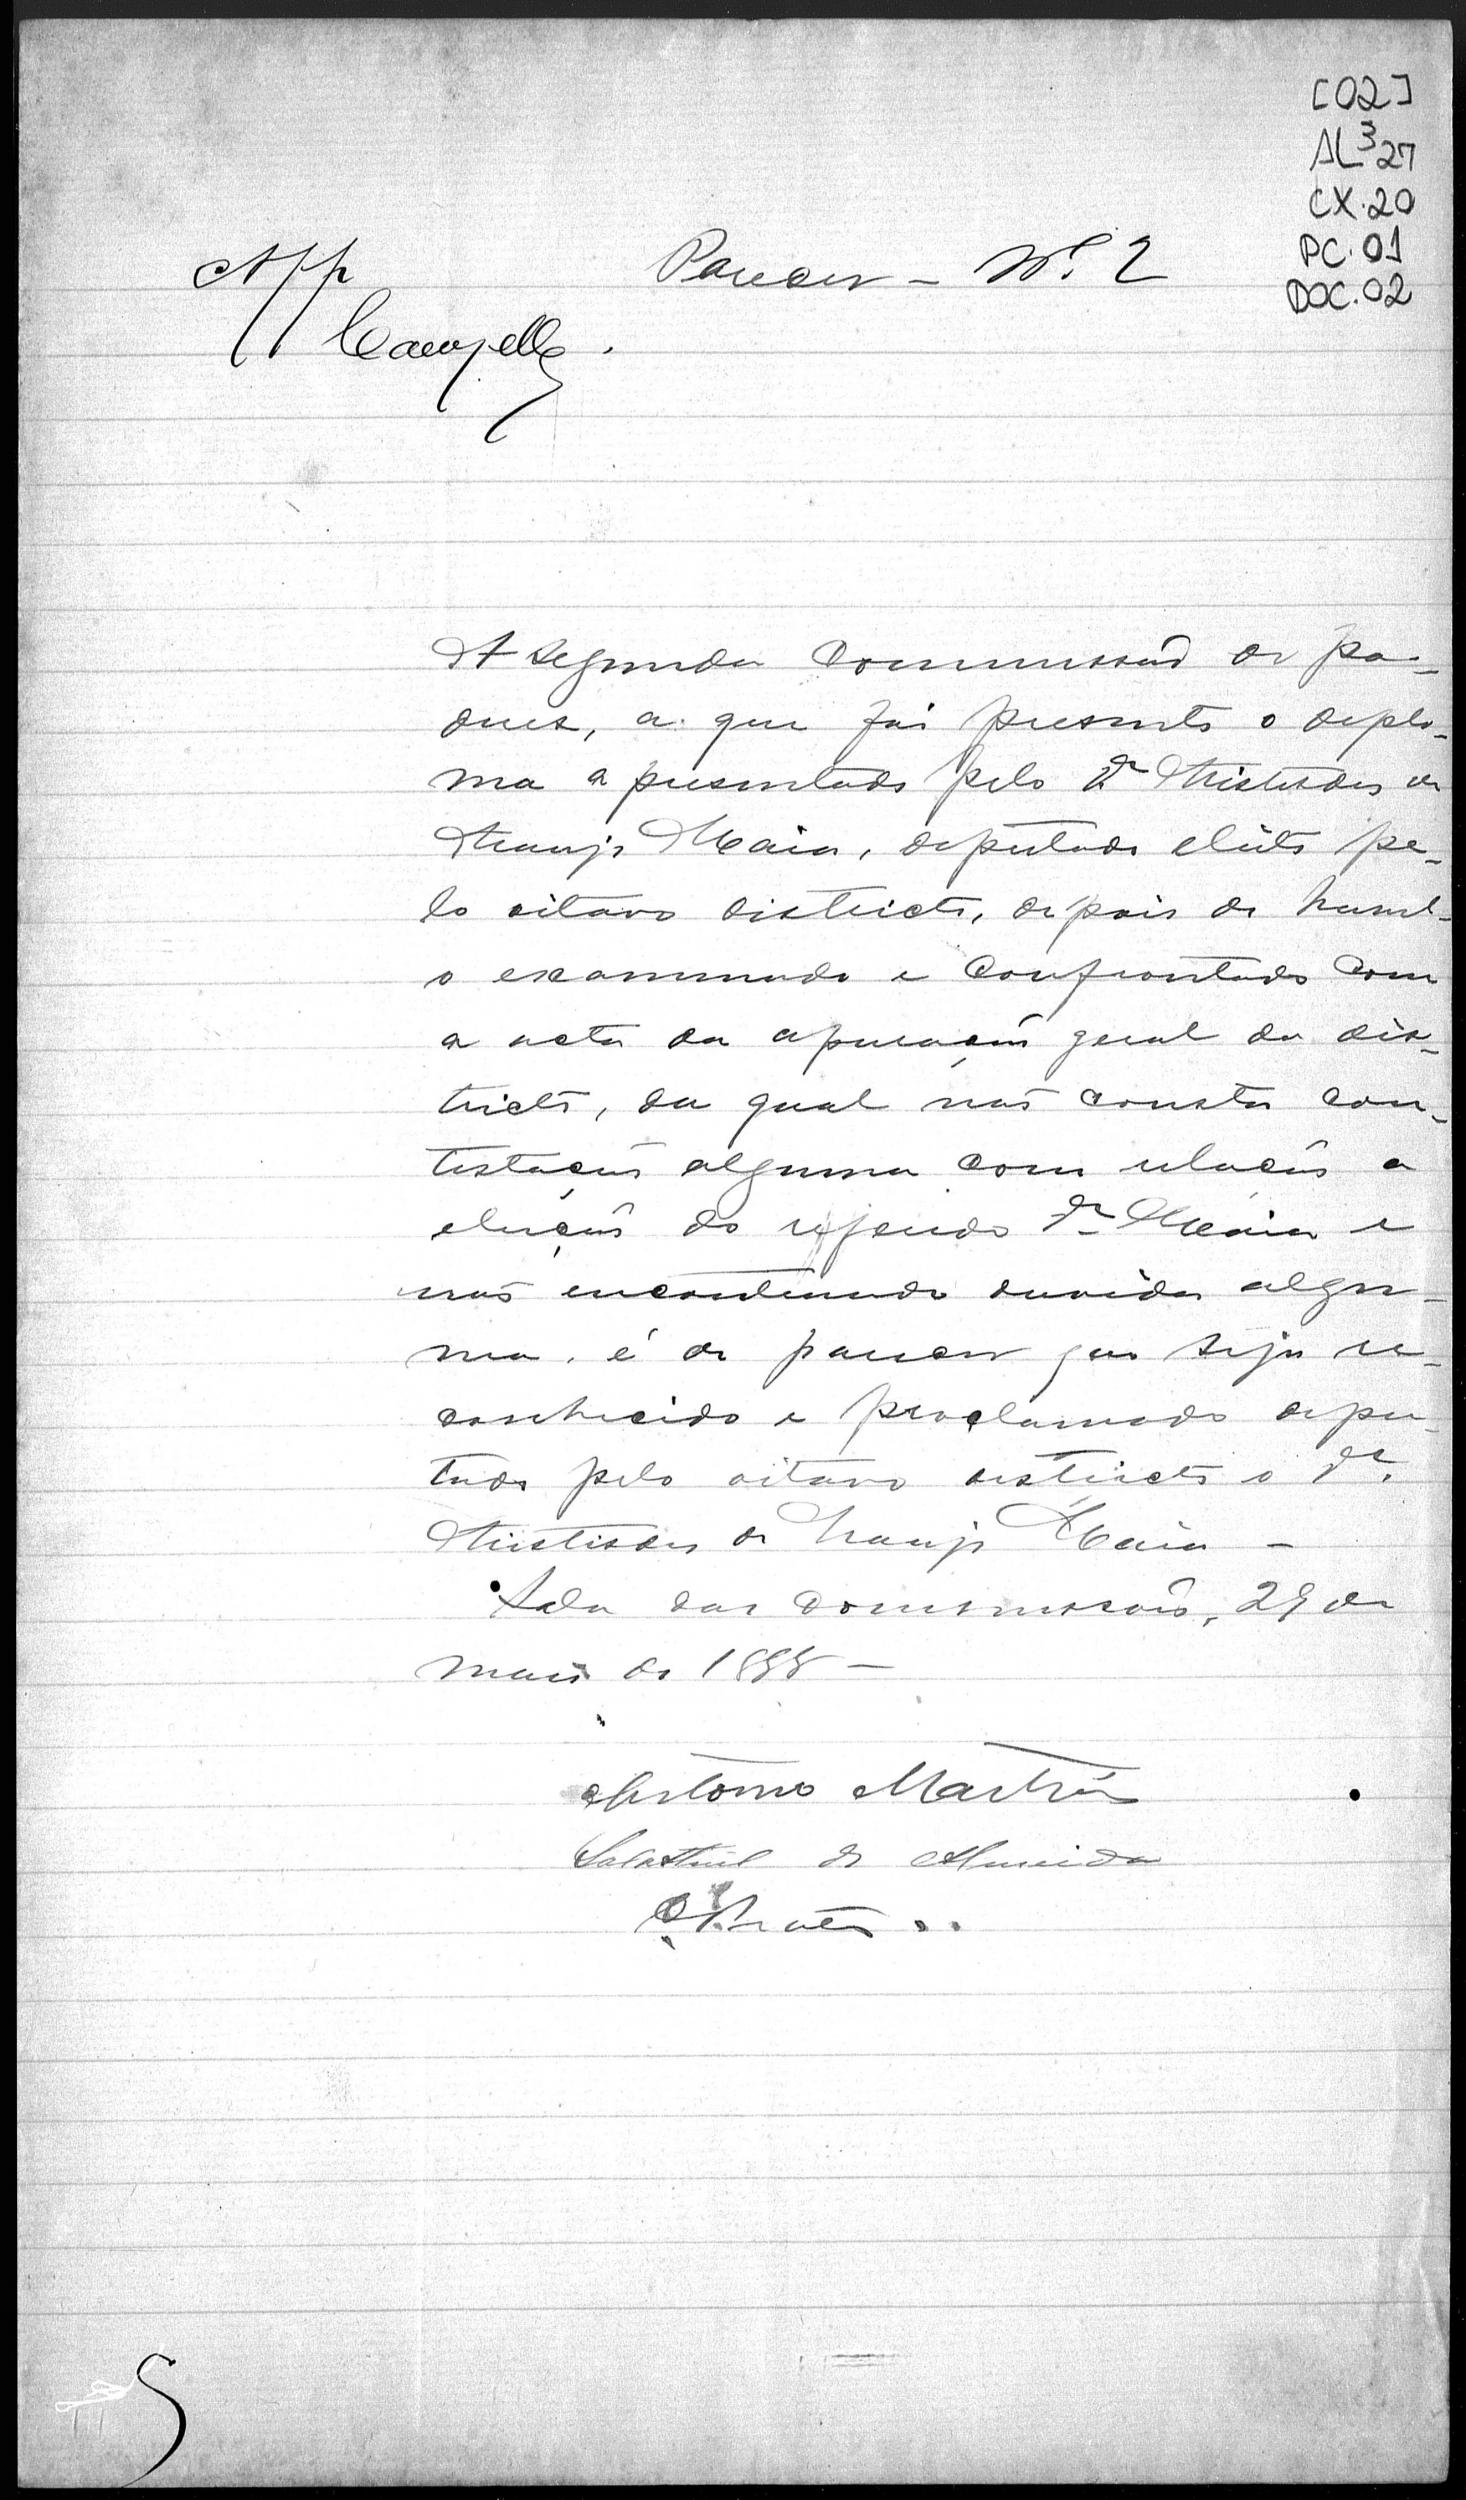 [02]
AL³27
CX.20
PC.01
DOC.02
App
Parecer - Nº. 2
Campello.
A segunda Commissaõ de po-
deres, a que foi presente o deplo-
ma apresentado pelo Dr Aristides de
Araujo Maia, deputado eleito pe-
lo oitavo districto, depois de havel-
o examinado e confrontado com
a acta da apuraçaõ geral do dis-
tricto, da qual naõ consta con-
testaçaõ alguma com relaçaõ a
eleiçaõ do referido Dr Maia e
naõ encontrando duvida algu-
ma, é de parecer que seja re-
conhecido e proclamado depu-
tado pelo oitavo destricto o Dr.
Aristides de Araujo Maia -
Sala das Commissoẽs, 29 de
maio de 1888 -
Antonio Martins
Salathiel de Almeida